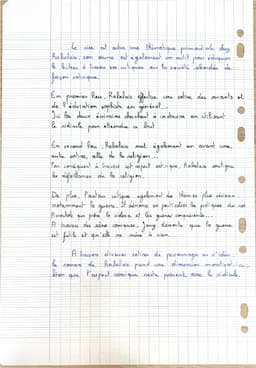 Le rire est outre une thématique primordiale chez
Rabelais, son œuvre est également un outil pour éduquer
le lecteur à travers ses critiques sur la société abordée de
façon satirique.
En premier lieu, Rabelais effectue une satire des savants et
de l'éducation sophiste en général...
Ici les deux écrivains cherchent à instruire en utilisant
le ridicule pour atteindre ce but.
En second lieu, Rabelais met également en avant une
autre satire, celle de la religion...
Par conséquent à travers cet aspect satirique, Rabelais souligne
les défaillances de la religion.
De plus, l'auteur critique également des thèmes plus sérieux
notamment la guerre. Il dénonce en particulier les pratiques des rois
qui prône la violence et les guerres conquérantes...
A travers des scènes comiques, démontre que la guerre
est futile et qu'elle ne mène à rien.
A travers diverses satires de personnage ou d'idée,
le roman de Rabelais prend une dimension
bien que l'aspect comique reste présent avec le ridicule.